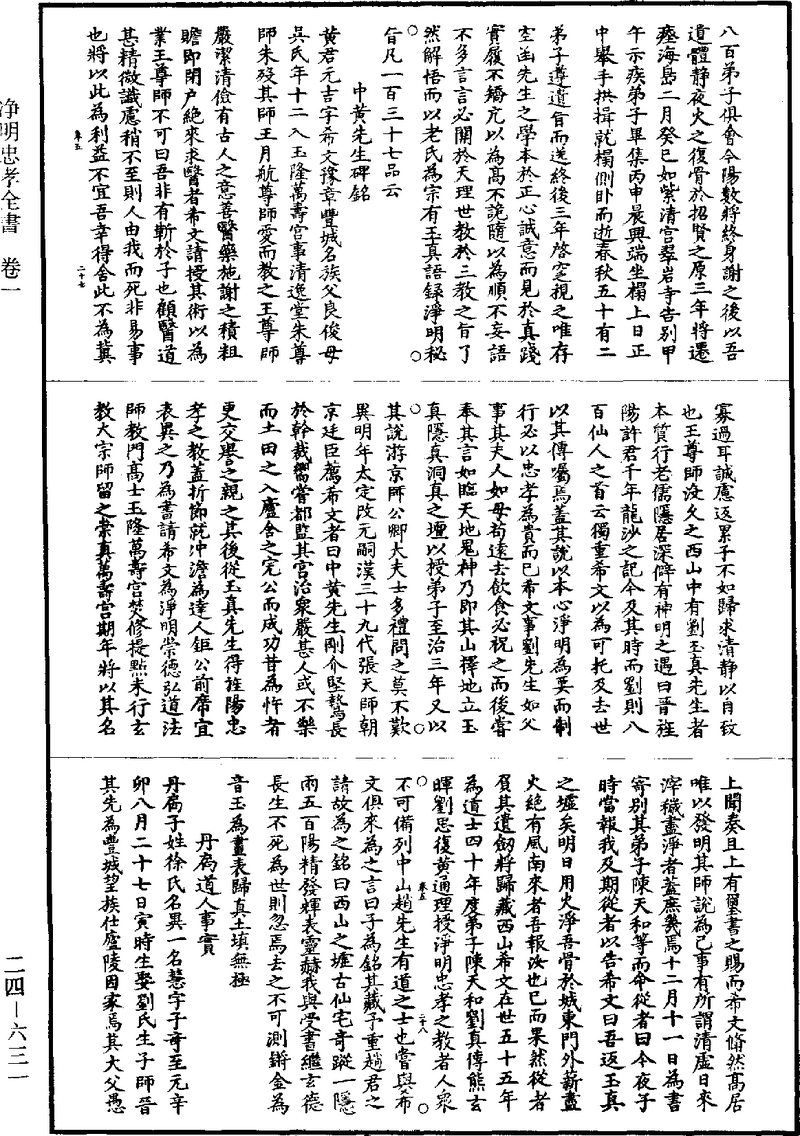 八百弟子俱會今陽數將終身謝之後以吾
遺體靜夜火之復骨於招賢之原三年將遷
瘞海島二月癸巳如紫清宮翠岩寺告別甲
午示疾弟子畢集丙申晨興端坐榻上日正
中舉手拱揖就榻側卧而逝春秋五十有二
弟子遵遺旨而送終後三年啓窆視之唯存
空函先生之學本於正心誠意而見於真踐
實履不矯亢以為高不詭隨以為順不妄語
不多言言必關於天理世教於三教之旨了
然解悟而以老氏為宗有玉真語録淨明秘
旨凡一百三十七品云
中黃先生碑銘
黃君元吉字希文豫章豐城名族父良俊母
吳氏年十二入玉隆萬壽宮事清逸堂朱尊
師朱歿其師王月航尊師愛而教之王尊師
嚴潔清儉有古人之意善醫藥施謝之積粗
贍即閉户絶來求醫者希文請授其術以為
業王尊師不可曰吾非有靳於子也顧醫道
甚精微識慮稍不至則人由我而死非易事
也將以此為利益不宜吾幸得舍此不為冀
卷五
二十七
寡過耳誠慮返累子不如歸求清静以自致
也王尊師没久之西山中有劉玉真先生者
本質行老儒隱居深僻有神明之遇曰晉旌
陽許君千年龍沙之記今及其時而劉則八
百仙人之首云獨重希文以為可托及去世
以其傳囑焉蓋其說以本心淨明為要而制
行必以忠孝為貴而已希文事劉先生如父
事其夫人如母苟遠去飲食必祝之而後嘗
奉其言如臨天地鬼神乃即其山擇地立玉
真隱真洞真之壇以授弟子至治三年又以
其說游京師公卿大夫士多禮問之莫不歎
異明年太定改元嗣漢三十九代張天師朝
京廷臣薦希文者曰中黃先生剛介堅鷙長
於幹裁嚮嘗都監其宮治衆嚴甚人或不樂
而土田之入廬舍之完公而成功昔為忤者
更交譽之親之其後從玉真先生得旌陽忠
孝之教蓋折節就冲澹為達人鉅公前席宜
表異之乃為書請希文為淨明崇德弘道法
師教門高士玉隆萬壽宮焚修提點未行玄
教大宗師留之崇真萬壽宮期年將以其名
上聞奏且上有璽書之賜而希文翛然高居
唯以發明其師說為己事有所謂清虚日來
滓穢盡淨者蓋庶幾焉十二月十一日為書
寄別其弟子陳天和等而命從者曰今夜子
時當報我及期從者以告希文曰吾返玉真
之墟矣明日用火淨吾骨於城東門外薪盡
火絶有風南來者吾報汝也已而果然從者
負其遺劔將歸藏西山希文在世五十五年
為道士四十年度弟子陳天和劉真傳熊玄
暉劉思復黃通理授淨明忠孝之教者人衆
卷五
二十八
不可備列中山趙先生有道之士也嘗與希
文俱來為之言曰子為銘其藏子重趙君之
請故為之銘曰西山之墟古仙宅奇蹤一隱
兩五百陽精發輝表靈赫我與受書繼玄德
長生不死為世則忽焉去之不可測鏘金為
音玉為畫表歸真土填無極
丹扃道人事實
丹扃子姓徐氏名異一名慧字子奇至元辛
卯八月二十七日寅時生娶劉氏生子師晉
其先為豐城望族仕廬陵因家焉其大父愚
淨明忠孝全書 卷一
二四—六三一